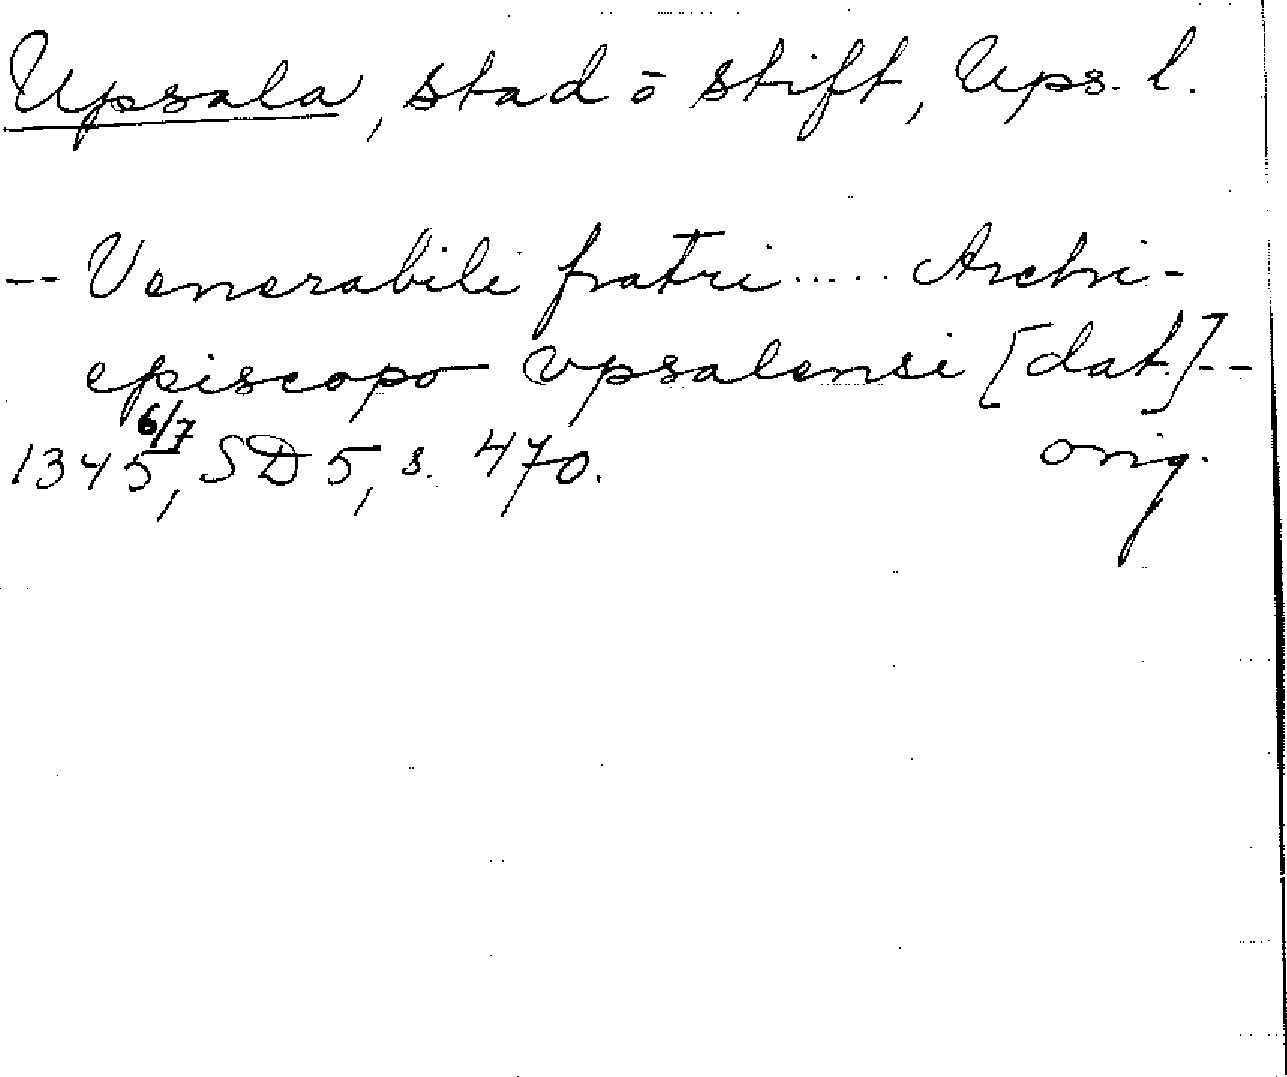 Upsala, stad o stift, Ups. l.
-- Venerabili fratri ..... Archi-
episcopo vpsalensi [dat.] --
1345 6/7, SD 5, s. 470. orig.